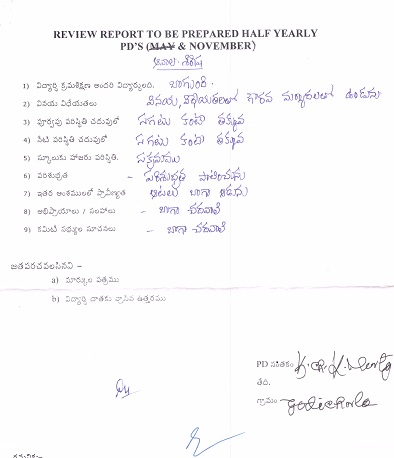 REVIEW REPORT TO BE PREPARED HALF YEARLY
PD'S (MAY & NOVEMBER)
1) విద్యార్థి క్రమశిక్షణ అందరి విద్యార్థులది. బాగుంది.
2) వినయ విధేయతలు వినయ, విధేయతలతో గౌరవ మర్యాదలతో ఉండును
3) పూర్వపు పరిస్థితి చదువులో సగటు కంటే తక్కువ
4) నేటి పరిస్థితి చదువులో సగటు కంటే తక్కువ
5) స్కూలుకు హాజరు పరిస్థితి. సక్రమము
6) పరిశుభ్రత – పరిశుభ్రత పాటించును
7) ఇతర అంశములలో ప్రావీణ్యత – ఆటలు బాగా ఆడును
8) అభిప్రాయాలు / సలహాలు – బాగా చదవాలి
9) కమిటీ సభ్యుల సూచనలు – బాగా చదవాలి
జతపరచవలసినవి –
a) మార్కుల పత్రము
b) విద్యార్థి దాతకు వ్రాసిన ఉత్తరము
PD సంతకం
తేది.
గ్రామం